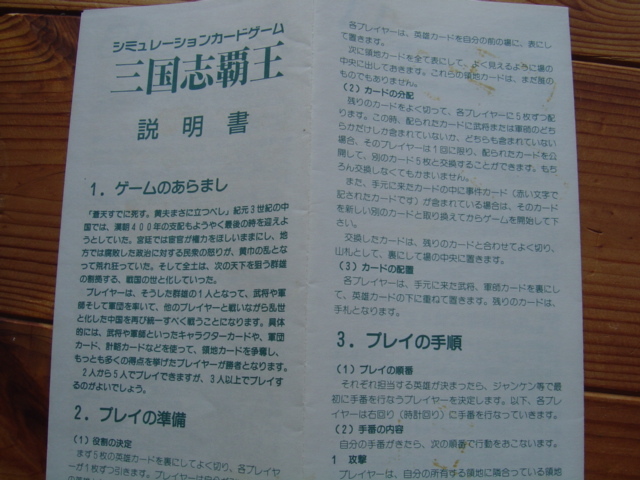 シミュレーションカードゲーム
三国志覇王
説明書
1．ゲームのあらまし
「蒼天すでに死す。黄夫まさに立つべし」紀元３世紀の中
国では、漢朝４００年の支配もようやく最後の時を迎えよ
うとしていた。宮廷では宦官が権力をほしいままにし、地
方では腐敗した政治に対する民衆の怒りが、黄巾の乱となっ
て荒れ狂っていた。そして全土は、次の天下を狙う群雄
の割拠する、戦国の世と化していった。
プレイヤーは、そうした群雄の１人となって、武将や軍
師そして軍団を率いて、他のプレイヤーと戦いながら乱世
と化した中国を再び統一すべく戦うことになります。具体
的には、武将や軍師といったキャラクターカードや、軍団
カード、計略カードなどを使って、領地カードを争奪し、
もっとも多くの得点を挙げたプレイヤーが勝者となります。
２人から５人でプレイできますが、３人以上でプレイす
るのがよいでしょう。
2．プレイの準備
（1）役割の決定
まず５枚の英雄カードを裏にしてよく切り、各プレイヤ
ーが１枚ずつ引きます。
各プレイヤーは、英雄カードを自分の前の場に、表にし
て置きます。
次に領地カードを全て表にして、よく見えるように場の
中央に出しておきます。これらの領地カードは、まだ誰の
ものでもありません。
（2）カードの分配
残りのカードをよく切って、各プレイヤーに５枚ずつ配
ります。この時、配られたカードに武将または軍師のどち
らかだけしか含まれていないか、どちらも含まれていない
場合、そのプレイヤーは１回に限り、配られたカードを公
開して、別のカード５枚と交換することができます。もち
ろん交換しなくてもかまいません。
また、手元に来たカードの中に事件カード（赤い文字で
記されたカードです）が含まれている場合は、そのカード
を新しい別のカードと取り換えてからゲームを開始して下
さい。
交換したカードは、残りのカードと合わせてよく切り、
山札として、裏にして場の中央に置きます。
（3）カードの配置
各プレイヤーは、手元に来た武将、軍師カードを裏にし
て、英雄カードの下に重ねて置きます。残りのカードは、
手札となります。
3．プレイの手順
（1）プレイの順番
それぞれ担当する英雄が決まったら、ジャンケン等で最
初に手番を行なうプレイヤーを決定します。以下、各プレ
イヤーは右回り（時計回り）に手番を行なっていきます。
（2）手番の内容
自分の手番がきたら、次の順番で行動をおこないます。
1 攻撃
プレイヤーは、自分の所有する領地に隣合っている領地